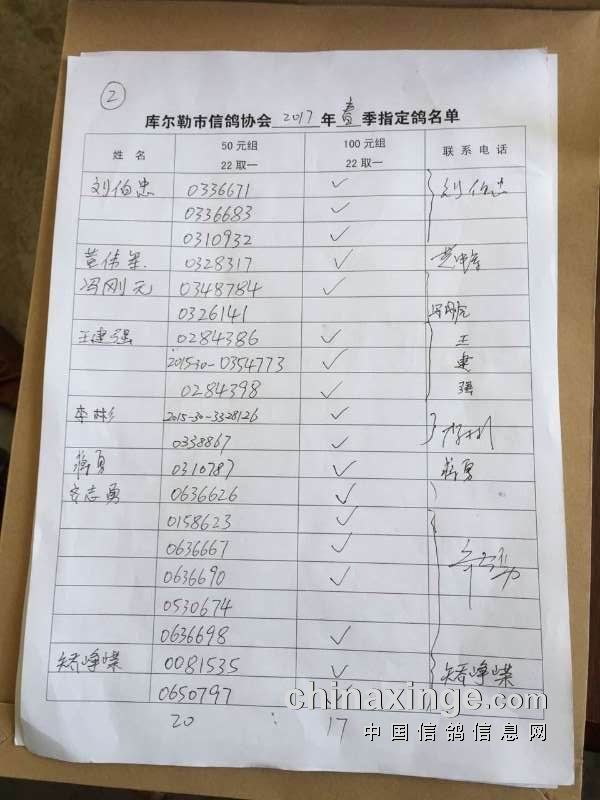 2
库尔勒市信鸽协会 2017 年 春 季指定鸽名单
姓 名 50 元组 22 取一 100 元组 22 取一 联 系 电 话
刘伯忠 0336671 ✓ 刘伯忠
0336683 ✓
0310932 ✓
0328317 ✓
冯刚元 0348784 ✓
0326141 冯刚元
王建强 0284386 ✓ 王
2015-30-0354773 ✓ 建
0284398 ✓ 强
李彬 2015-30-3328126 ✓
0338867 ✓
蒋勇 0310787 ✓ 蒋勇
安志勇 0636626 ✓
0158623 ✓
0636667 ✓
0636690 ✓
0530674
0636698 ✓
峥嵘 0081535 ✓ 峥嵘
0650797 ✓
20 : 17
chinaxinge.com
中国信鸽信息网